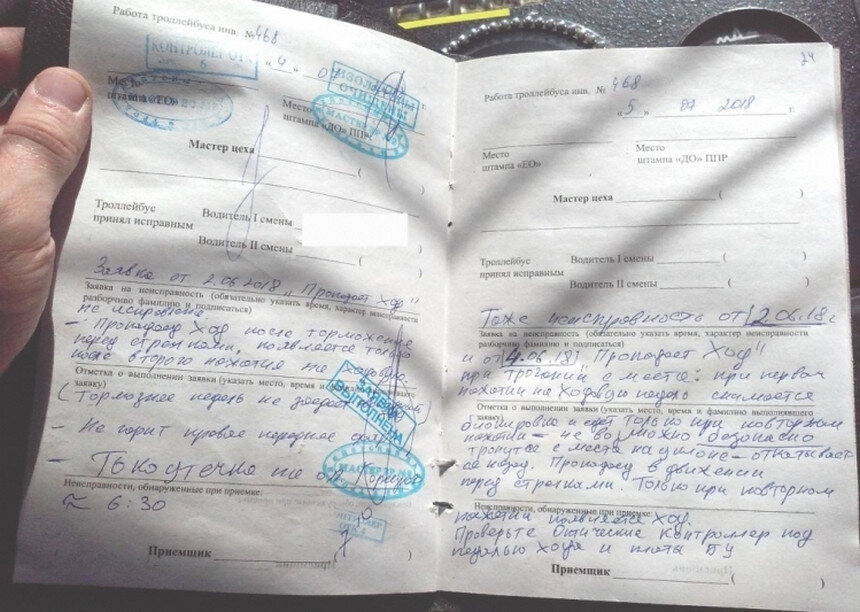 Работа троллейбуса инв. № 468
КОНТРОЛЕР ОТК
6
«4» 07 г.
ИЗОЛЯТОРЫ
ОЧИЩЕНЫ
МАСТЕР
Место
штампа «ЕО»
Место
штампа «ДО» ППР
Мастер цеха ( )
Троллейбус
принял исправным
Водитель I смены
Водитель II смены ( )
Заявка от 2.06.2018 „Пропадает Ход"
Заявка на неисправность (обязательно указать время, характер неисправности
разборчиво фамилию и подписаться)
не исправлена
- Пропадает Ход после торможения
перед стрелками, появляется только
после второго нажатия на ходовую.
Отметка о выполнении заявки (указать место, время и
заявку)
(Тормозная педаль не
ЗАЯВКА
ВЫПОЛНЕНА
- Не горит правое переднее
- Токоутечка на
МАСТЕР
Неисправности, обнаруженные при приемке:
≈ 6:30
Приемщик ( )
24
Работа троллейбуса инв. № 468
«5» 07 2018 г.
Место
штампа «ЕО»
Место
штампа «ДО» ППР
Мастер цеха ( )
Троллейбус
принял исправным
Водитель I смены ( )
Водитель II смены ( )
Тоже неисправность от 2.06.18г
Заявка на неисправность (обязательно указать время, характер неисправности
разборчиво фамилию и подписаться)
и от 4.06.18 „Пропадает Ход"
при трогании с места: при первом
нажатии на Ходовую педаль снимается
Отметка о выполнении заявки (указать место, время и фамилию выполнявшего
заявку)
блокировка и едет только при повторном
нажатии - не возможно безопасно
тронутся с места на уклоне - откатывает-
ся назад. Пропадает в движении
перед стрелками. Только при повторном
Неисправности, обнаруженные при приемке:
нажатии появляется ход.
Проверьте Оптические контроллер под
педалью хода и платы БУ
Приемщик ( )